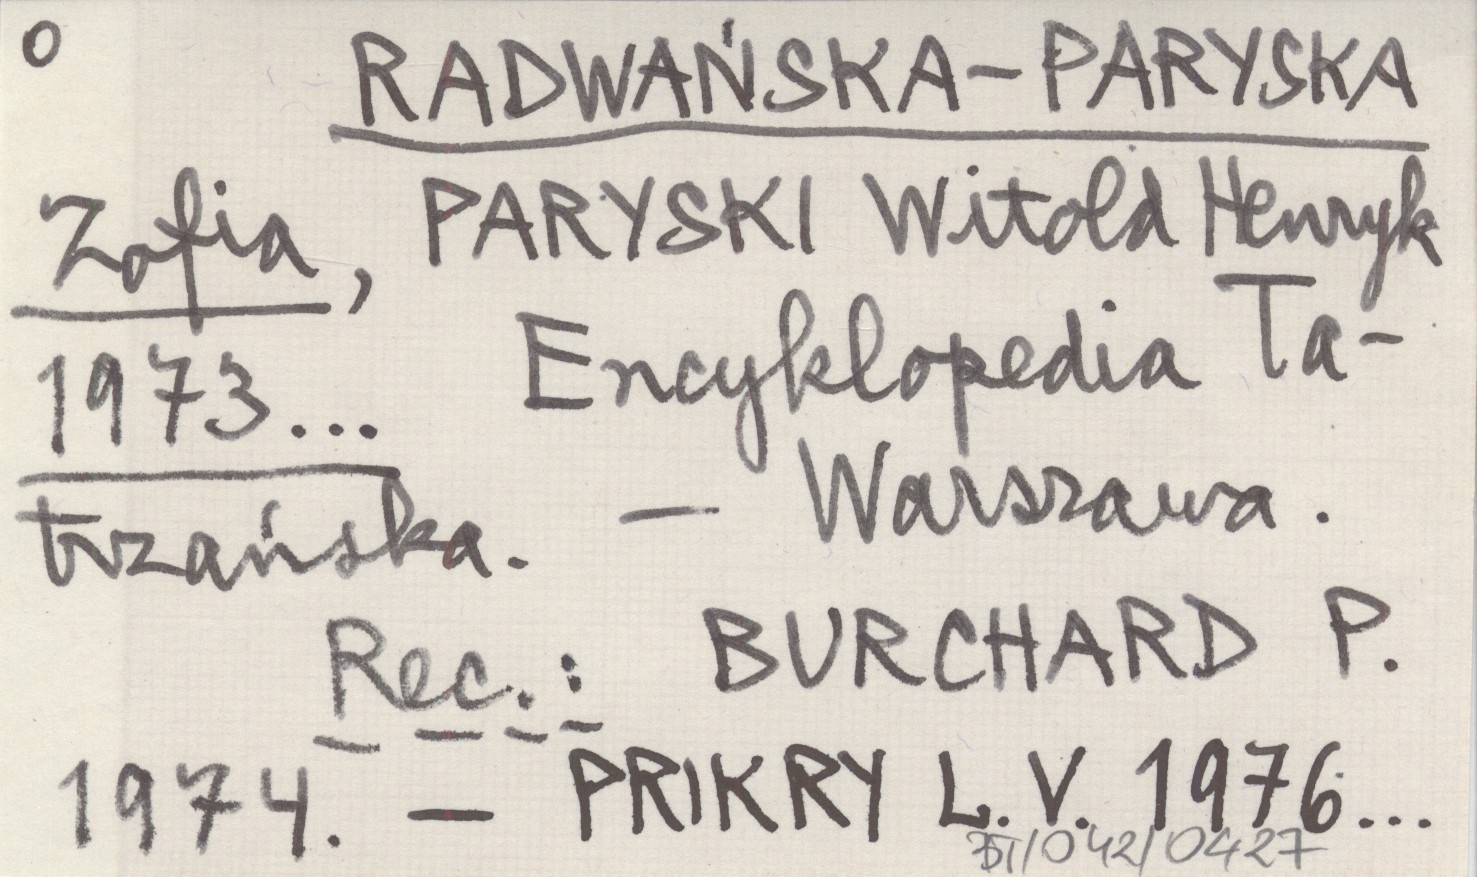 O
RADWAŃSKA-PARYSKA
Zofia, PARYSKI Witold Henryk
1973... Encyklopedia Ta-
trzańska. - Warszawa.
Rec.: BURCHARD P.
1974. - PRIKRY L.V. 1976...
BT/042/0427